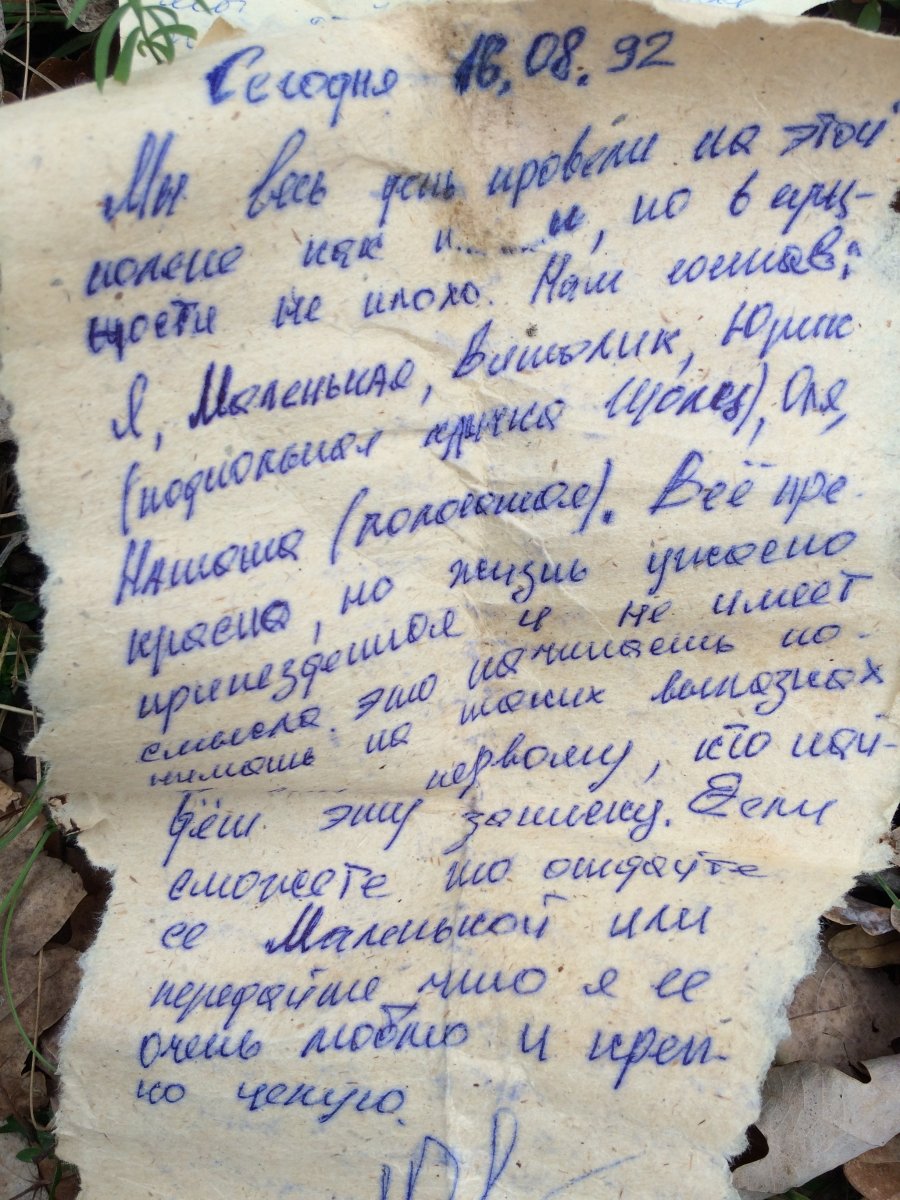 Сегодня 16.08.92
Мы весь день провели на этой
поляне как, но в прин-
не плохо. Нам
Я, Маленькая, Виталик, Юрик
(подпольная кличка), Оля,
Наташа (полосатая). Всё пре-
красно, но жизнь ужасно
и не имеет
смысла. это начинаешь по-
нимать на таких вылазках
первому, кто най-
дёт эту записку. Если
сможете то отдайте
ее Маленькой или
передайте что я ее
очень люблю и креп-
ко целую.